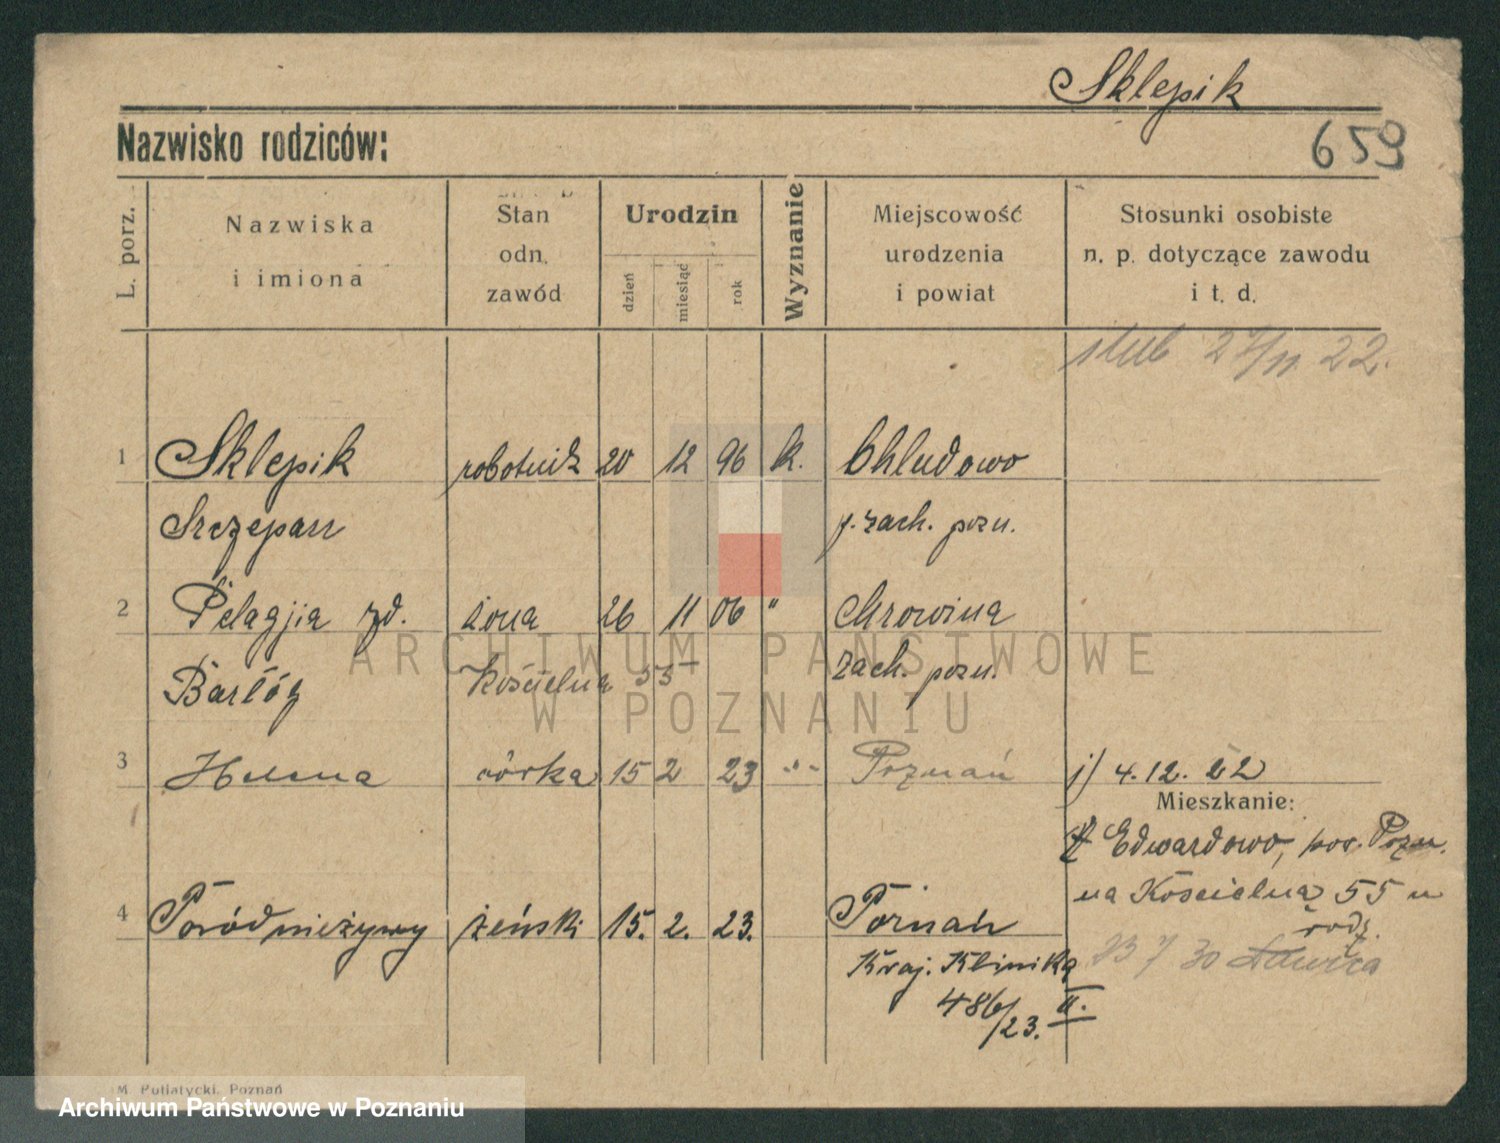 Sklepik
Nazwisko rodziców:
659
L. porz.
Nazwiska
i imiona
Stan
odn.
zawód
Urodzin
dzień
miesiąc
rok
Wyznanie
Miejscowość
urodzenia
i powiat
Stosunki osobiste
n. p. dotyczące zawodu
i t. d.
ślub 27/11 22.
1 Sklepik robotnik 20 12 96 k. Chludowo
Szczepan p. zach. pozn.
2 Pelagja zd. żona 26 11 06 " Chrowina
Bartóg Kościelna 55 zach. pozn.
3 Helena córka 15 2 23 -"- Poznań j) 4.12.22
Mieszkanie:
Z Edwardowo, pow. Pozn.
na Kościelna 55 u
rodz.
4 Poród nieżywy żeński 15. 2. 23. Poznań
23 7 30 Ławica
Kraj. Klinika
486/23. II.
M. Putiatycki, Poznań
ARCHIWUM PAŃSTWOWE
W POZNANIU
Archiwum Państwowe w Poznaniu